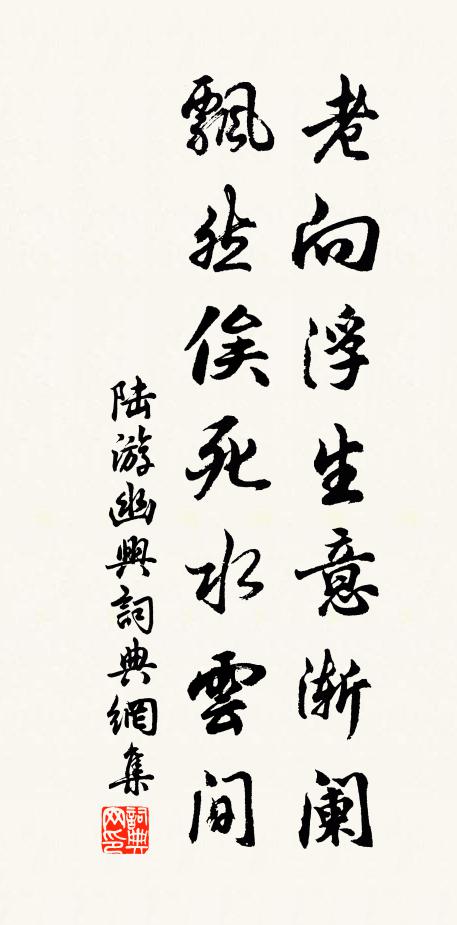 老向浮生意渐阑
飘然俟死水雲间
陆游幽興詞典網集
詞典網印